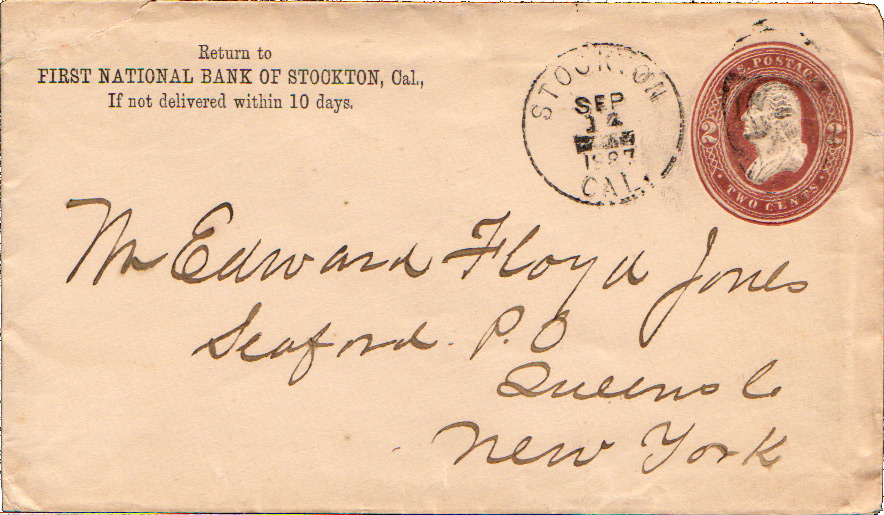 Return to
FIRST NATIONAL BANK OF STOCKTON, Cal.,
If not delivered within 10 days.
STOCKTON
SEP
1887
CAL.
U.S. POSTAGE
2 2
TWO CENTS
Mr Edward Floyd Jones
Seaford. P.O
Queens Co
New York